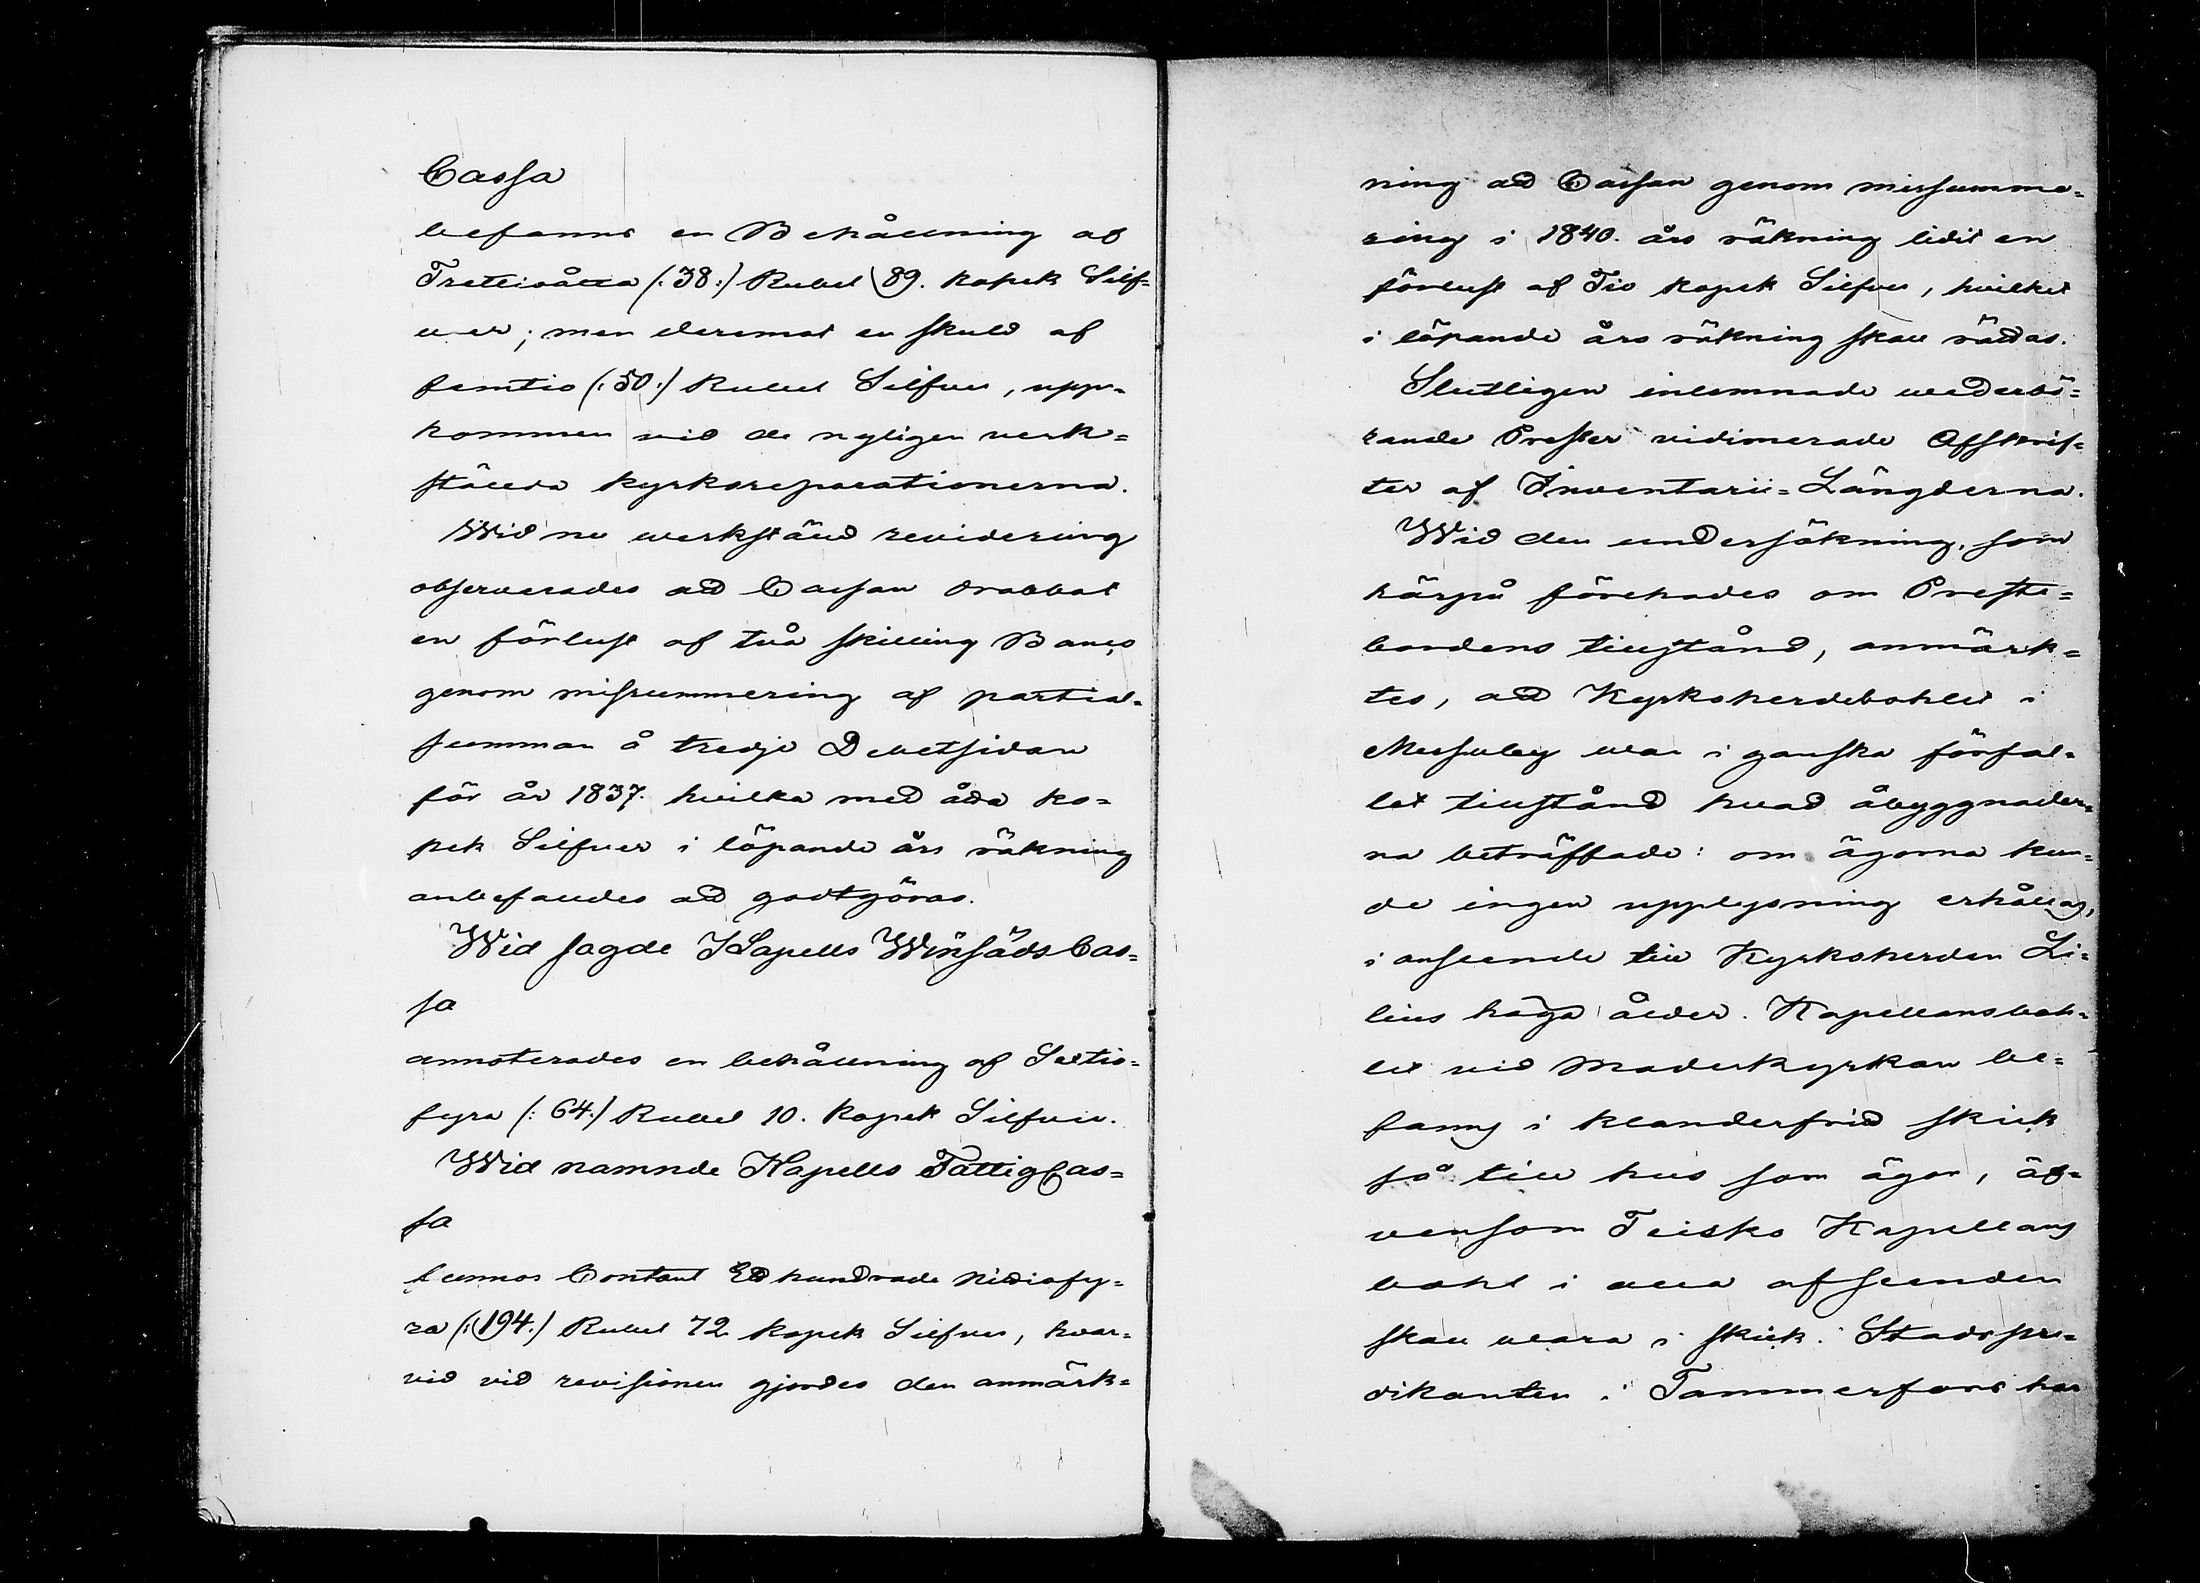 Cassa
befanns en Behållning af
Trettioåtta (:38:) Rubel 89. kopek Silf=
wer; men deremot en skuld af
femtio (:50:) Rubel Silfver, upp=
kommen vid de nyligen verk=
stälda kyrkoreparationerna.
Wid nu werkställd revidering
observerades att Cassan drabbat
en förlust af två skilling Banco
genom missummering af partial=
summan å tredje Debetsidan
för år 1837. hvilka med åtta ko=
pek Silfver i löpande års räkning
anbefalldes att godtgöras.
Wid sagde Kapells WinsädsCas=
sa
annoterades en behållning af Sextio=
fyra (:64:) Rubel 10. kopek Silfver.
Wid namnde Kapells FattigCas=
sa
funnos Contant Ett hundrade Nittiofy=
ra (:194:) Rubel 72 kopek Silfver, hvar=
vid vid revisionen gjordes den anmärk=
ning att Cassan genom missumme=
ring i 1840. års räkning lidit en
förlust af Tio kopek Silfver, hvilket
i löpande års räkning skall rättas.
Slutligen inlemnade wederbö=
rande Prester vidimerade Afskrif=
ter af Inventarii=Längderna.
Wid den undersökning, som
härpå förehades om Preste=
bordens tillstånd, anmärk=
tes, att Kyrkoherdebohlet i
Messuby war i ganska förfal=
let tillstånd hvad åbyggnader=
na beträffade: om ägorna kun=
de ingen upplysning erhållas,
i anseende till Kyrkoherden Li=
lius höga ålder. Kapellansboh=
let vid Moderkyrkan be=
fanns i klanderfritt skick
så till hus som ägor, äf=
vensom Teisko Kapellans
bohl i alla afseenden
skall wara i skick. Stadspre=
dikanten i Tammerfors har